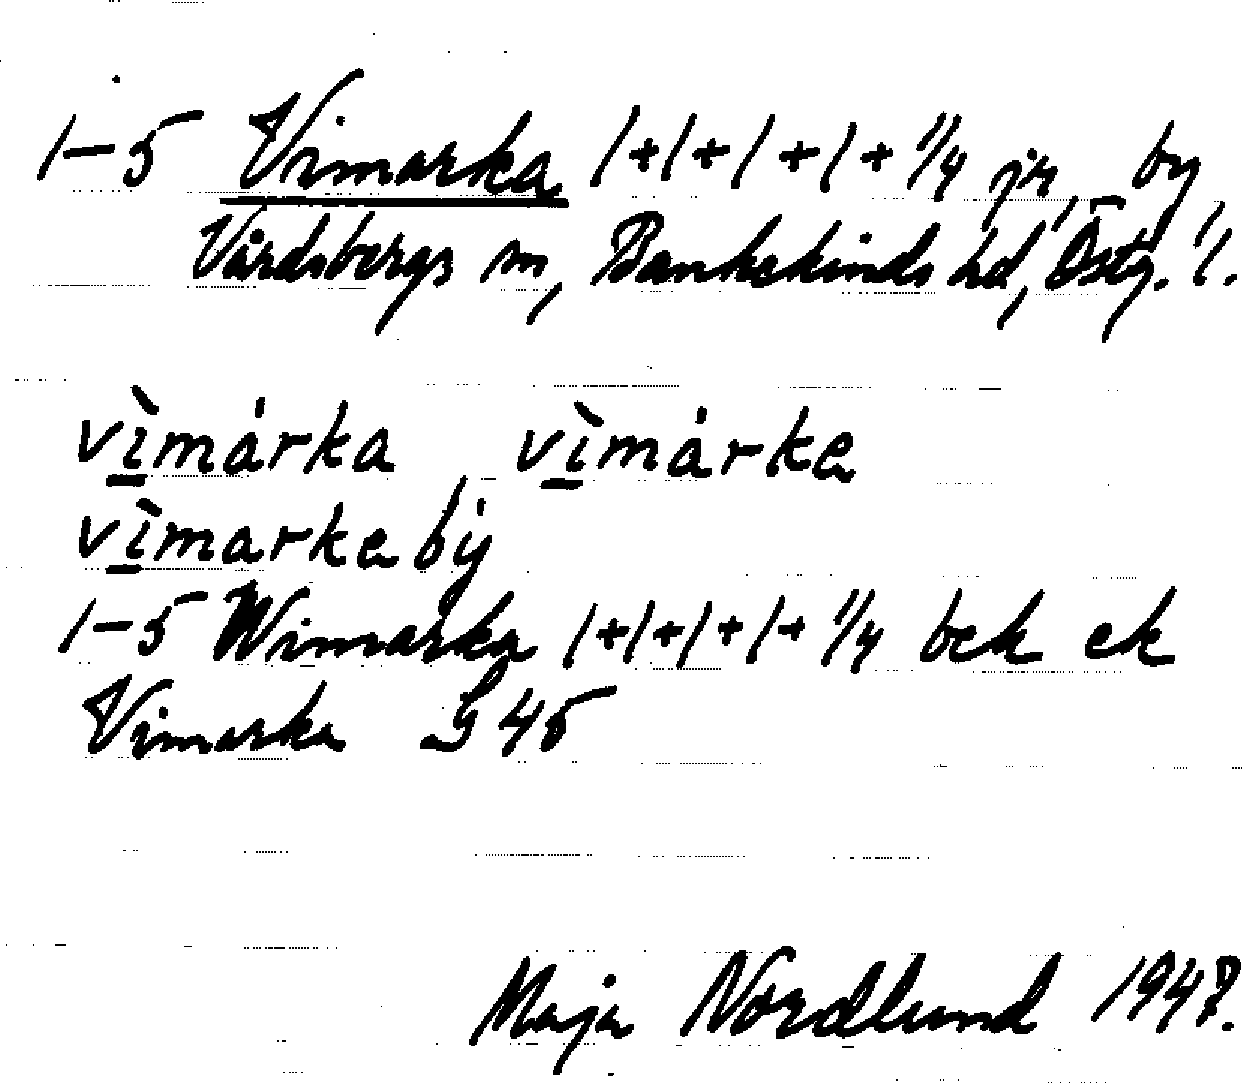 1-5 Vimarka 1+1+1+1+1/4 jr, by
Vårdsbergs sn, Bankekinds hd, Östg. l.
vìmárka vìmárke
vìmarkebý
1-5 Wimarka 1+1+1+1+1/4 bek ek
Vimarka G 45
Maja Nordlund 1947.